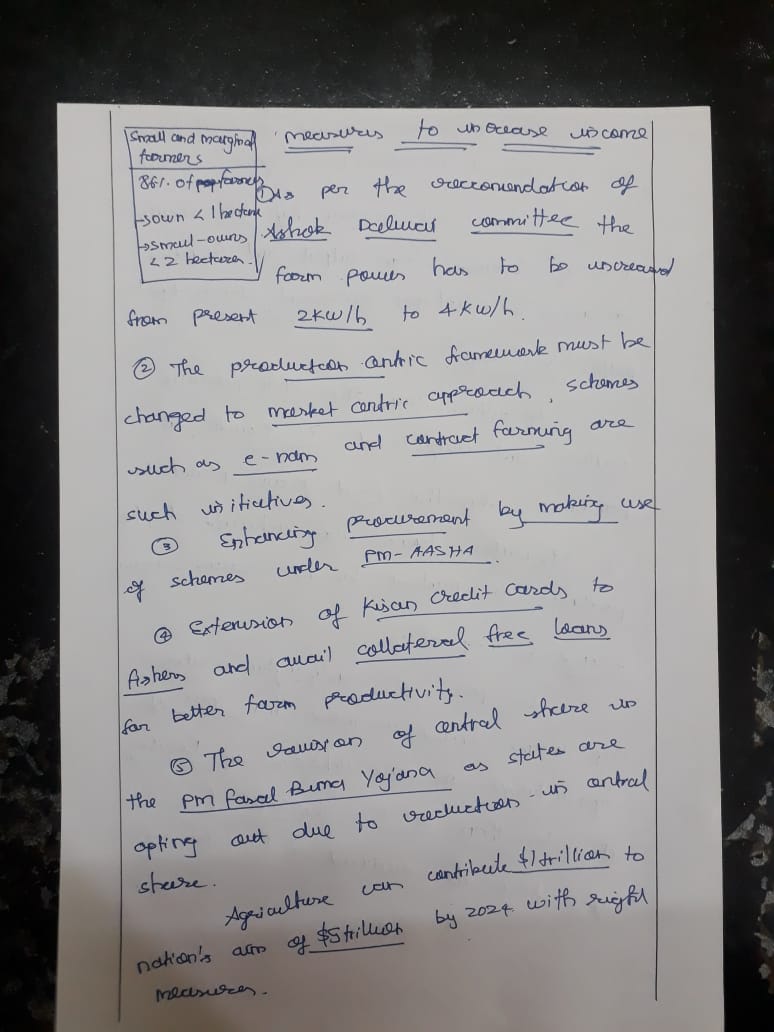 Small and marginal
farmers
86%. of farmers
→ own < 1 hectare
→ small - owns
< 2 hectares.
measures to increase income
① As per the reccomendation of
Ashok Dalwai committee the
farm power has to be increased
from present 2kw/h to 4kw/h.
② The production centric framework must be
changed to market centric approach, schemes
such as e-nam and contract farming are
such initiatives.
③ Enhancing procurement by making use
of schemes under PM-AASHA.
④ Extension of Kisan credit cards to
fishers and avail collateral free loans
for better farm productivity.
⑤ The revision of central share in
the PM fasal Bima Yojana as states are
opting out due to reduction in central
share.
Agriculture can contribute $1 trillion to
nation's aim of $5 trillion by 2024 with right
measures.